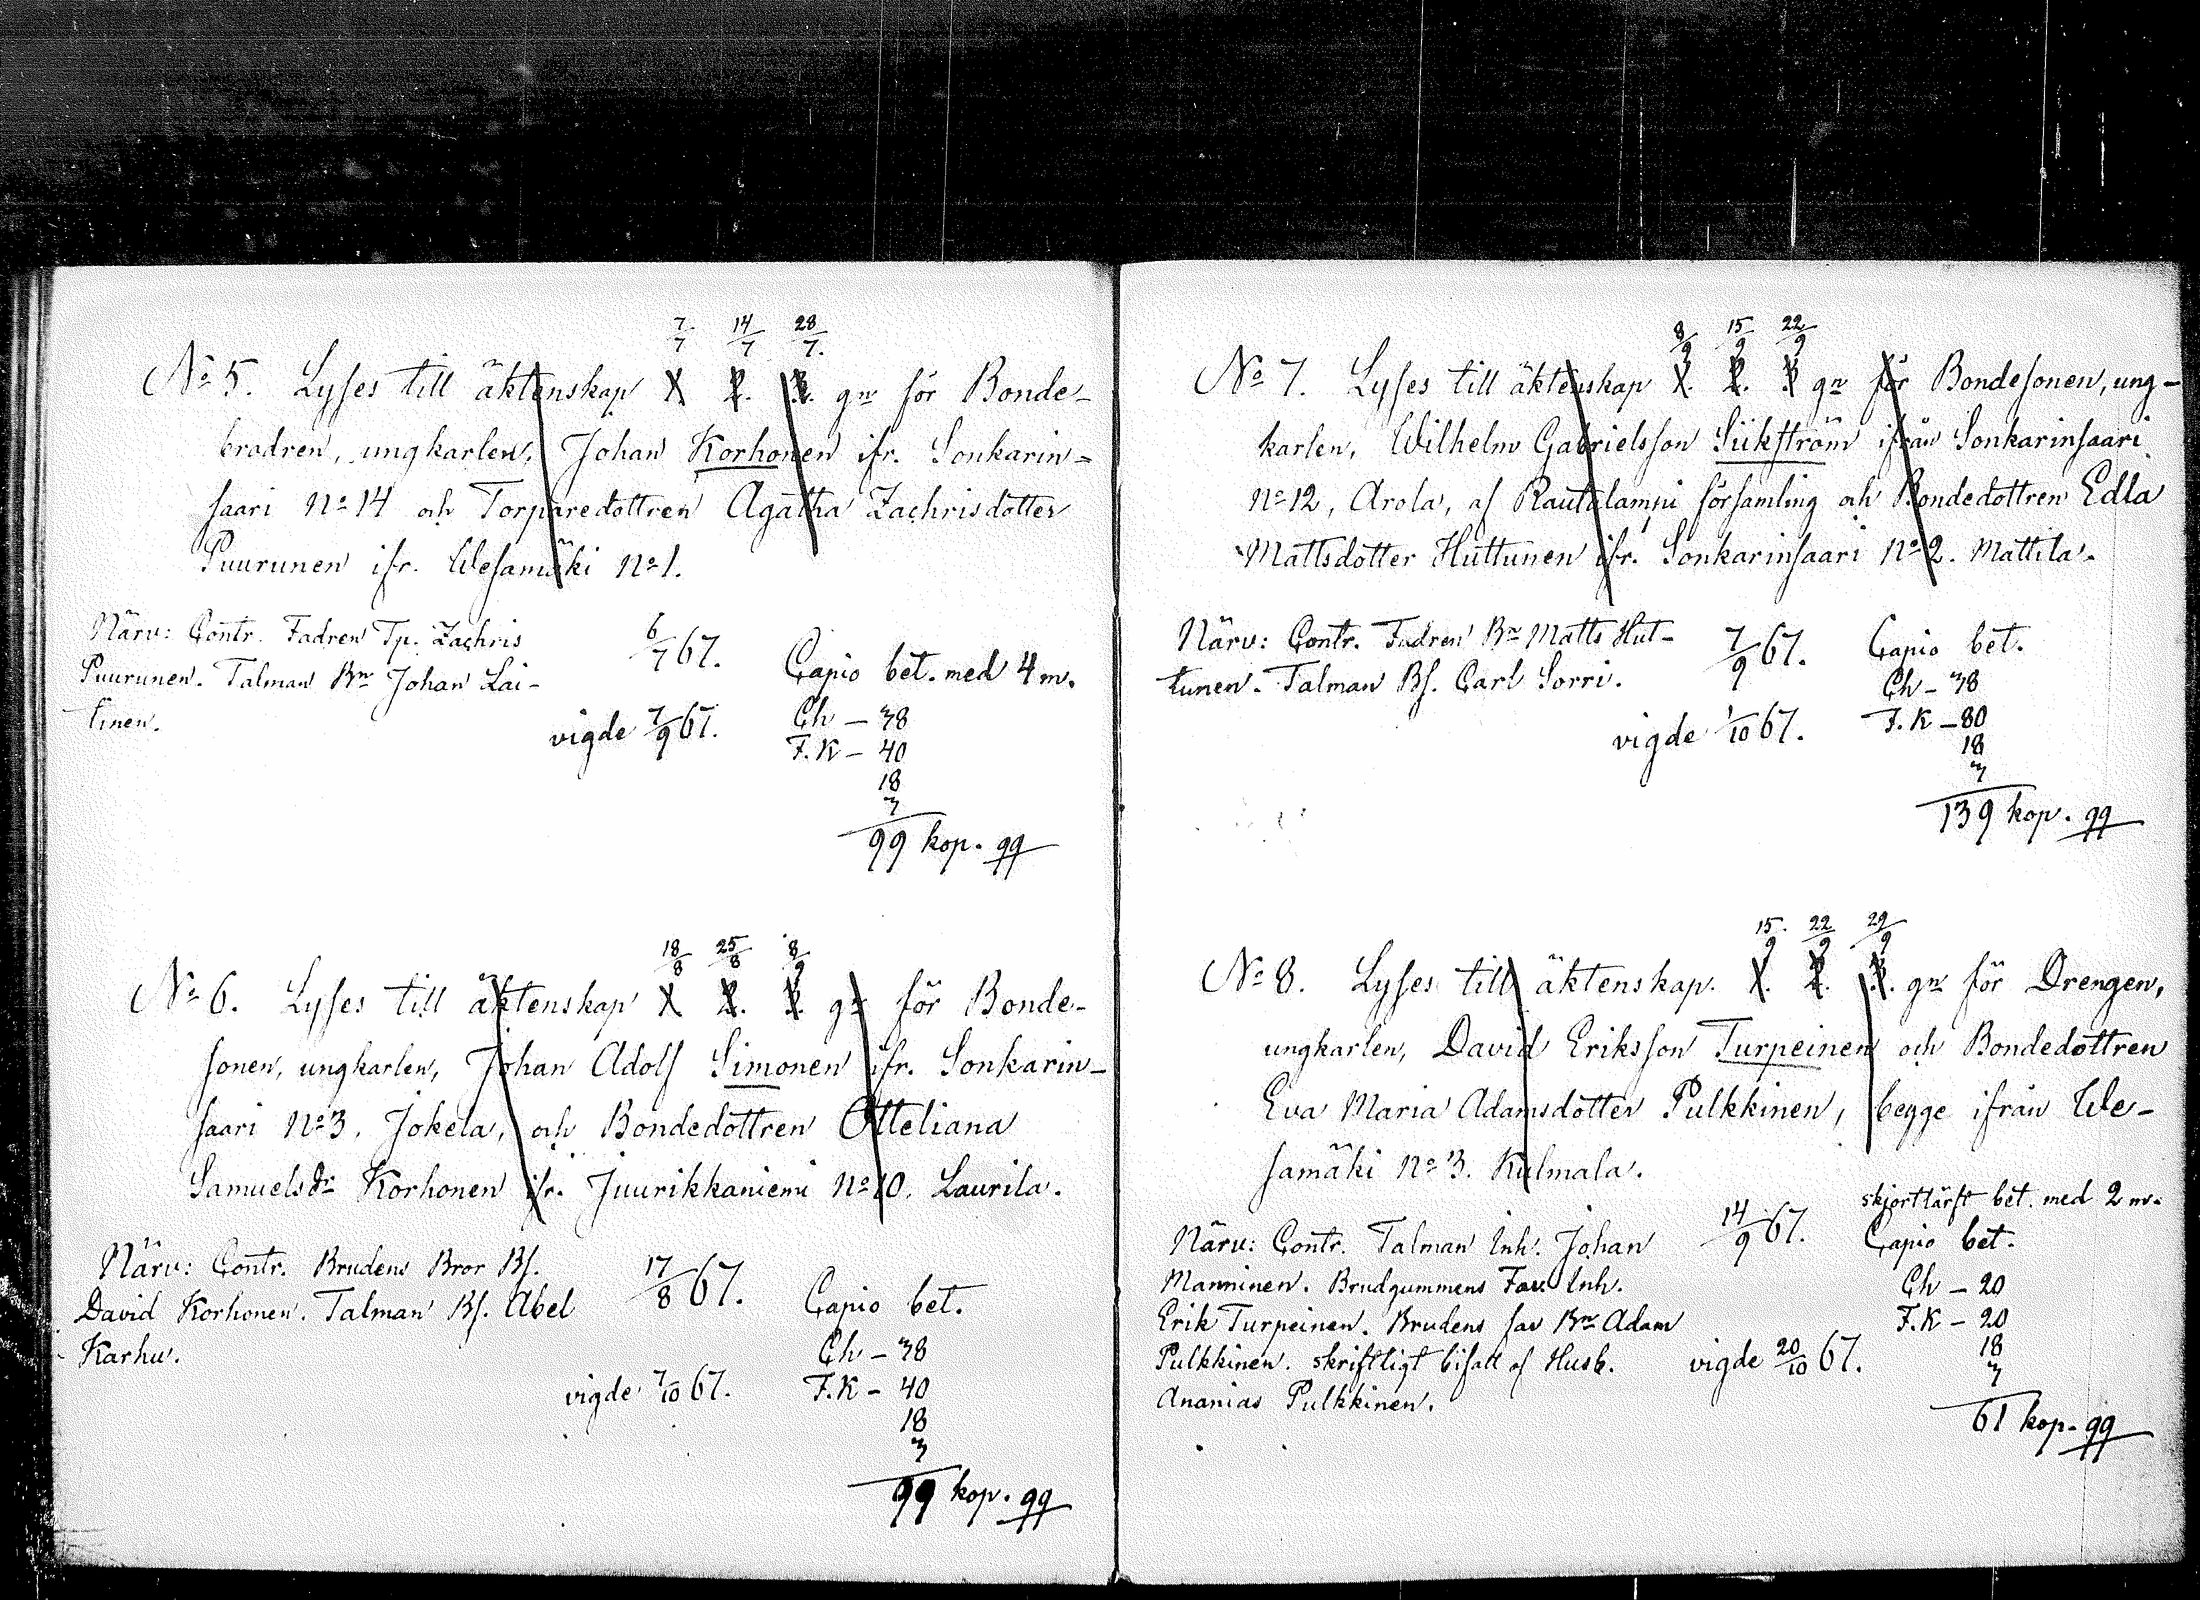 7/7 14/7 28/7.
No 5. Lyses till äktenskap 1. 2. 3. gn för Bonde-
brodren, ungkarlen, Johan Korhonen ifr. Sonkarin-
saari No 14 och Torparedottren Agatha Zachrisdotter
Puurunen ifr. Wesamäki No 1.
Närv: Contr. Fadren Tp. Zachris
Puurunen. Talman Bn Johan Lai-
tinen.
6/7 67.
Capio bet. med 4 m.
vigde 7/9 67.
Ch - 38
F.K - 40
18
3
99 kop. qq
18/8 25/8 8/9
No 6. Lyses till äktenskap 1. 2. 3. gn för Bonde-
sonen, ungkarlen, Johan Adolf Simonen ifr. Sonkarin-
saari No 3. Jokela, och Bondedottren Otteliana
Samuelsdr Korhonen ifr. Juurikkaniemi No 10. Laurila.
Närv: Contr. Brudens Bror Bs.
David Korhonen. Talman Bs. Abel
Karhu.
17/8 67.
Capio bet.
vigde 7/10 67.
Ch - 38
F.K - 40
18
3
99 kop. qq
8/9 15/9 22/9
No 7. Lyses till äktenskap 1. 2. 3 gn för Bondesonen, ung-
karlen, Wilhelm Gabrielsson Siikström ifrån Sonkarinsaari
No 12, Arola, af Rautalampi församling och Bondedottren Edla
Mattsdotter Huttunen ifr. Sonkarinsaari No 2. Mattila.
Närv: Contr. Fadren Bn Matts Hut-
tunen. Talman Bs. Carl Sorri.
7/9 67.
Capio bet.
vigde 1/10 67.
Ch - 38
F.K - 80
18
3
139 kop. qq
15/9 22/9 29/9
No 8. Lyses till äktenskap. 1. 2. 3. gn för Drengen,
ungkarlen, David Eriksson Turpeinen och Bondedottren
Eva Maria Adamsdotter Pulkkinen, begge ifrån We-
samäki No 3. Kulmala.
skjortlärft bet. med 2 m.
Närv: Contr. Talman Inh. Johan
Manninen. Brudgummens Far Inh.
Erik Turpeinen. Brudens far Bn Adam
Pulkkinen. skriftligt bifall af Husb.
Ananias Pulkkinen.
14/9 67.
Capio bet.
vigde 20/10 67.
Ch - 20
F.K - 20
18
3
61 kop. qq